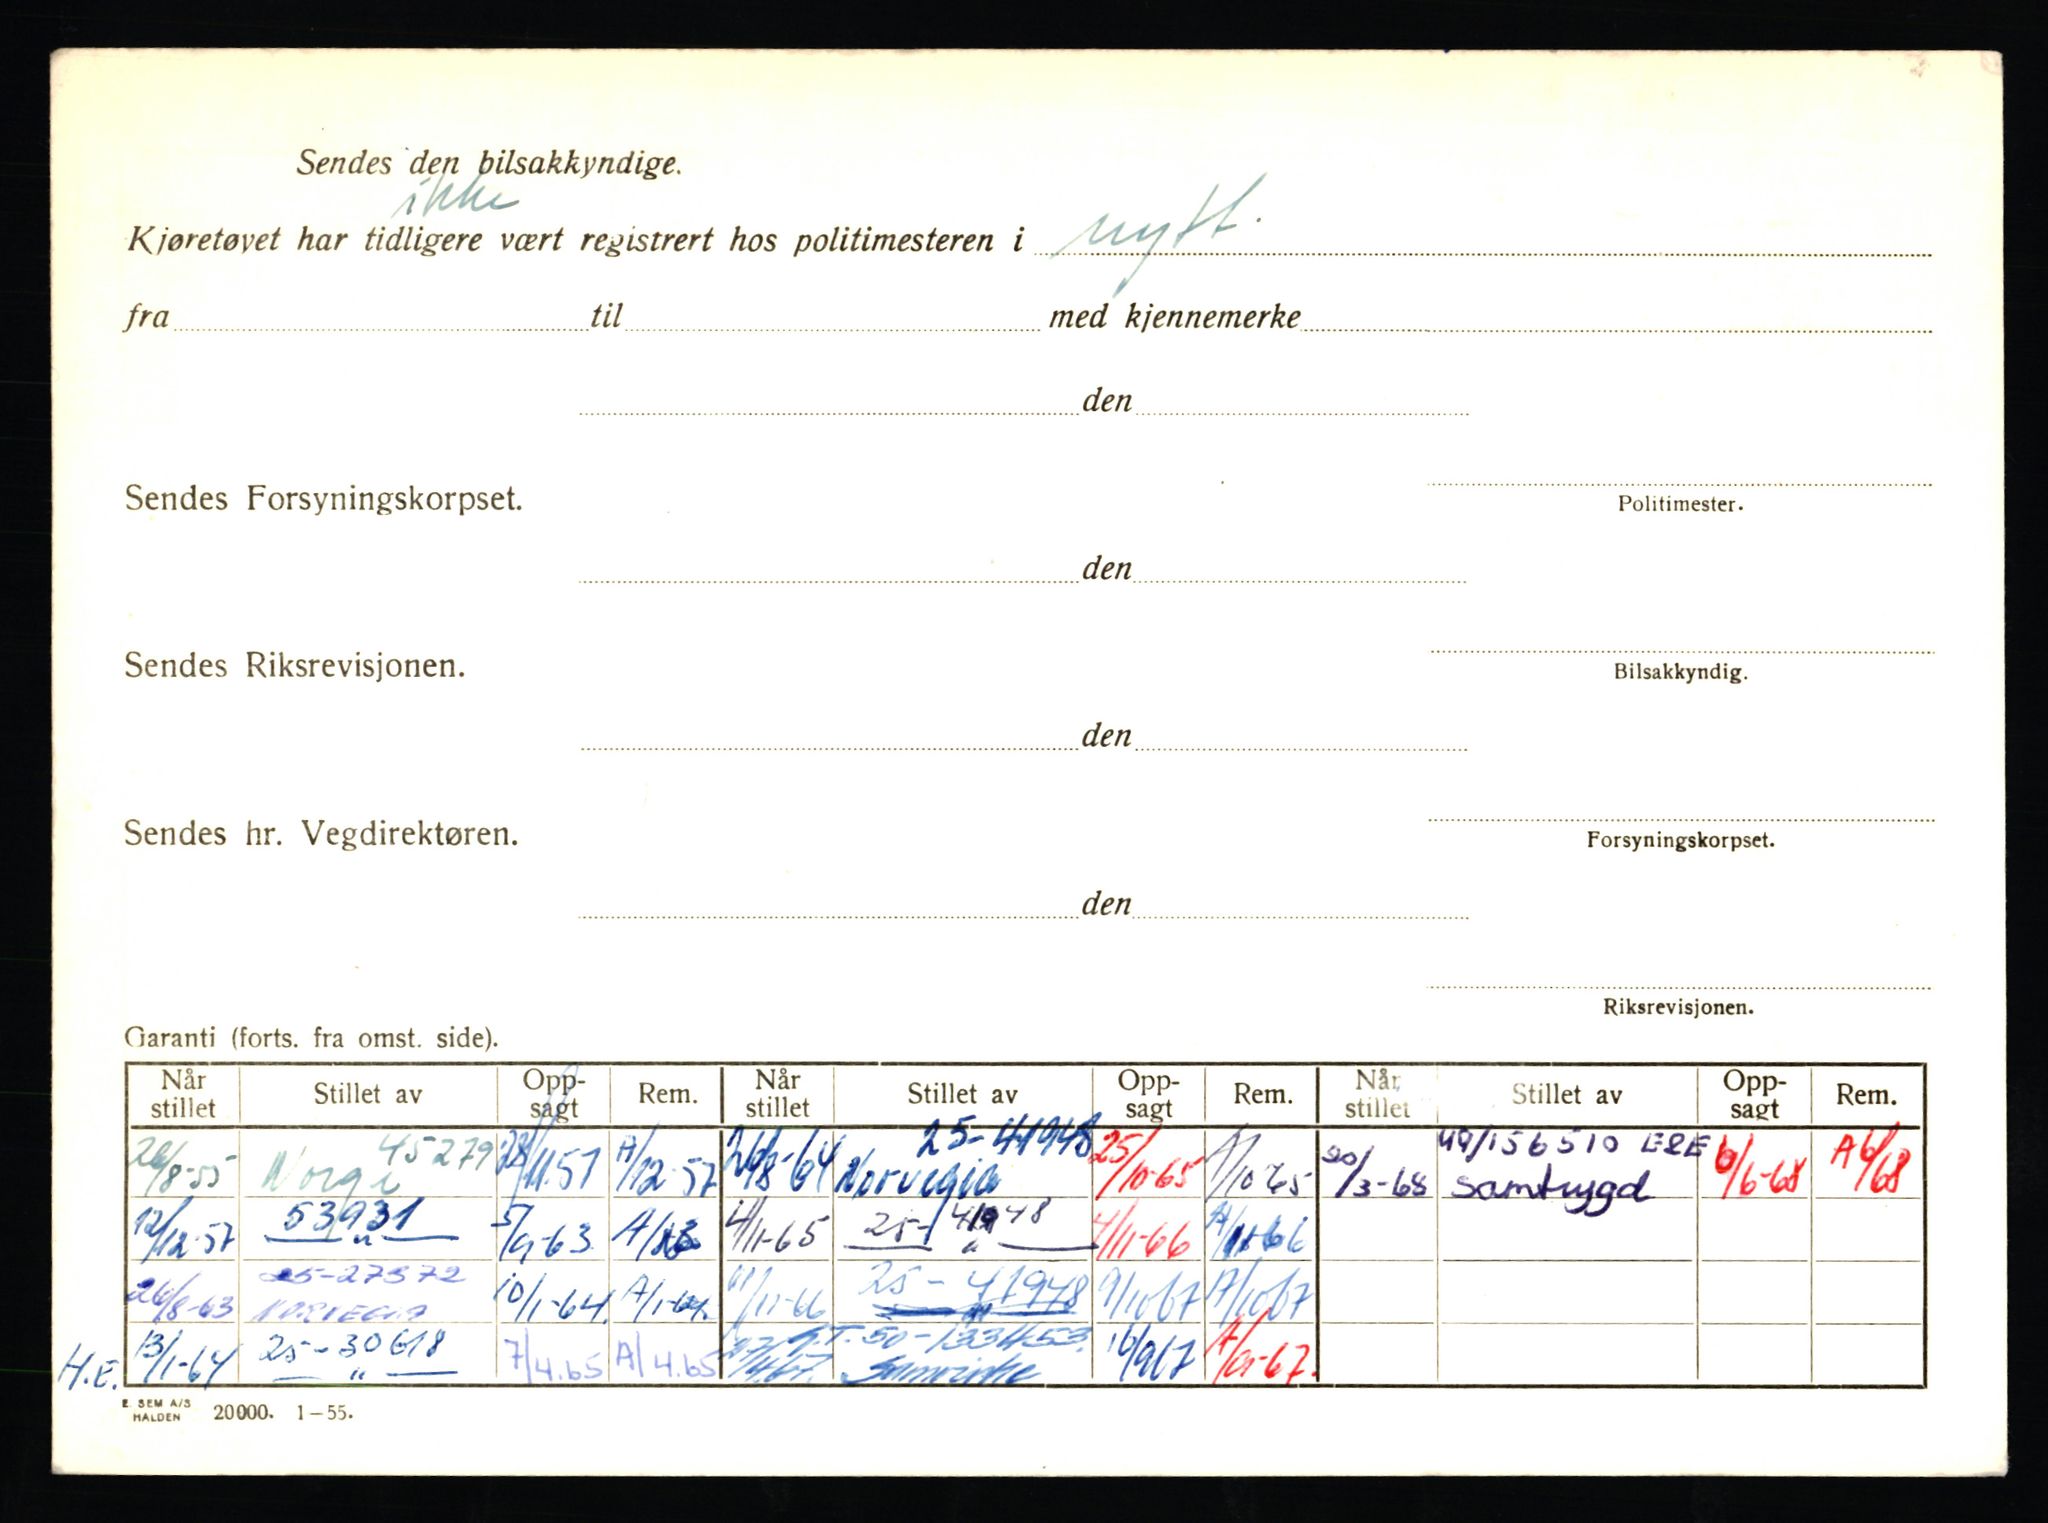 Sendes den bilsakkyndige.
ikke
Kjøretøyet har tidligere vært registrert hos politimesteren i nytt.
fra til med kjennemerke
den
Sendes Forsyningskorpset.
Politimester.
den
Sendes Riksrevisjonen.
Bilsakkyndig.
den
Sendes hr. Vegdirektøren.
Forsyningskorpset.
den
Riksrevisjonen.
Garanti (forts. fra omst. side).
Når stillet Stillet av Opp-sagt Rem. Når stillet Stillet av Opp-sagt Rem. Når stillet Stillet av Opp-sagt Rem.
26/8-55 45279 Norge 28/11.57 A/12-57 26/8-64 25-41948 Norvegia 25/10-65 A/10 65 20/3-68 49/156510 ERE Samtrygd 6/6-68 A 6/68
12/12-57 53931 — " — 5/9-63 4/11-65 25-41948 — " — 4/11-66 A/11-66
26/8-63 25-27372 NORVEGIA 10/1-64. A/1-64. 11/11-66 25-41948 — " — 9/10 67 A/10 67
H.E. 13/1-64 25-30618 — " — 7/4.65 A/4.65 50-133453 Samvirke 16/9 67 A/9-67.
E. SEM A/S
HALDEN 20000. 1-55.